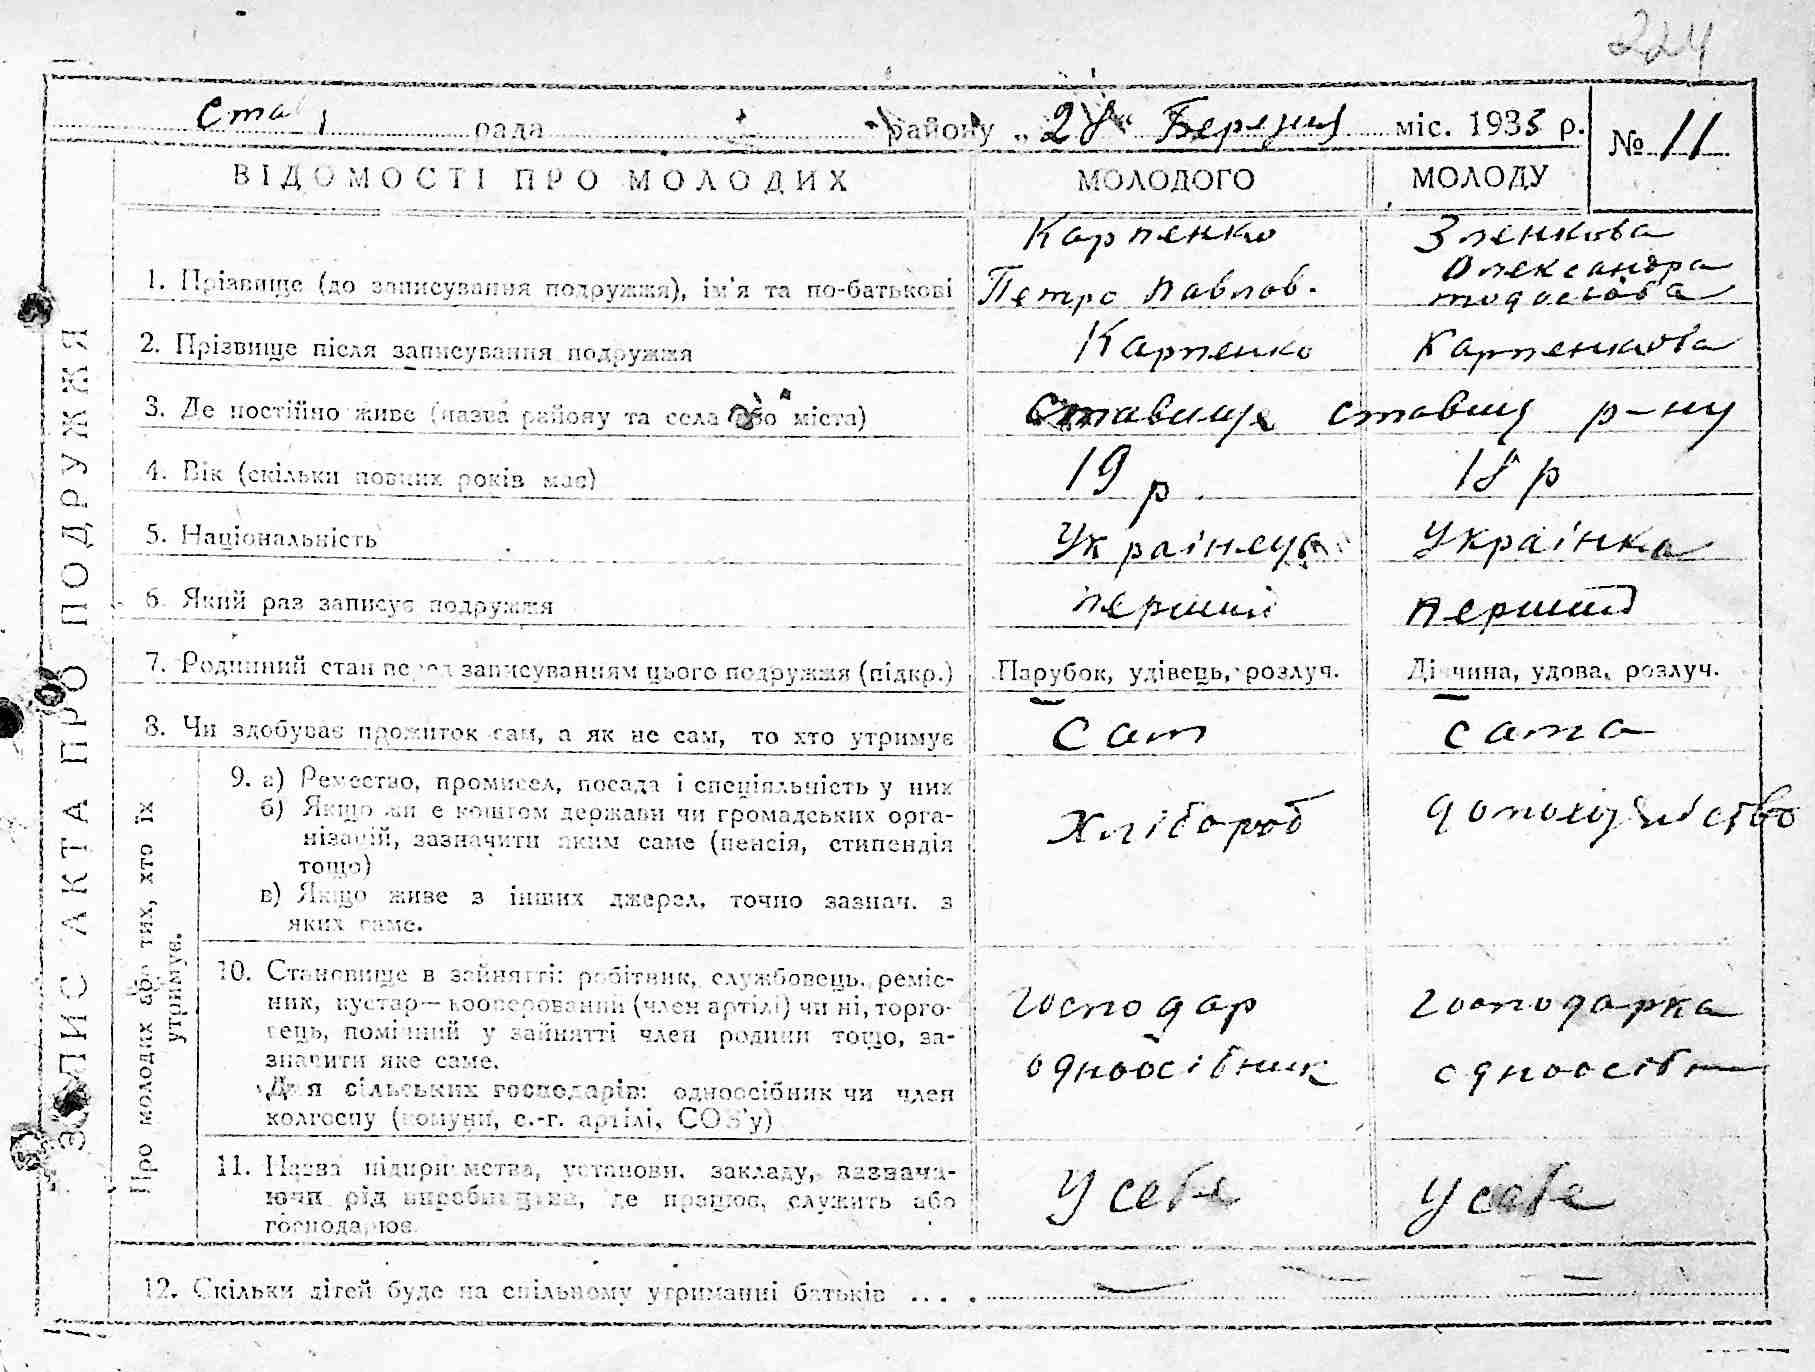 224
Ста рада району „28“ Березня міс. 1933 р. № 11
ВІДОМОСТІ ПРО МОЛОДИХ МОЛОДОГО МОЛОДУ
ЗАПИС АКТА ПРО ПОДРУЖЖЯ
Карпенко Зленкова
Олександра
1. Прізвище (до записування подружжя), ім'я та по-батькові Петро Павлов. тодосьова
2. Прізвище після записування подружжя Карпенко Карпенкова
3. Де постійно живе (назва району та села або міста) Ставище ставищ р-ну
4. Вік (скільки повних років має) 19 р. 18 р
5. Національність Украінець Украінка
6. Який раз записує подружжя перший перший
7. Родинний стан перед записуванням цього подружжя (підкр.) Парубок, удівець, розлуч. Дівчина, удова, розлуч.
8. Чи здобуває прожиток сам, а як не сам, то хто утримує Сам сама
Про молодих або тих, хто їх утримує.
9. а) Ремество, промисел, посада і спеціяльність у них
б) Якщо жи є коштом держави чи громадських орга- Хлібороб домохозяйство
нізацій, зазначити яким саме (пенсія, стипендія
тощо)
в) Якщо живе з інших джерел, точно зазнач. з
яких саме.
10. Становище в зайнятті: робітник, службовець, реміс-
ник, кустар—кооперований (член артілі) чи ні, торго- господар господарка
вець, помічний у зайнятті член родини тощо, за-
значити яке саме. одноосібник одноосібн
Для сільських господарів: одноосібник чи член
колгоспу (комуни, с.-г. артілі, СОЗ'у)
11. Назва підприємства, установи, закладу, зазнача-
ючи рід виробництва, де працює, служить або У себе У себе
господарює
12. Скільки дітей буде на спільному утриманні батьків .... — —